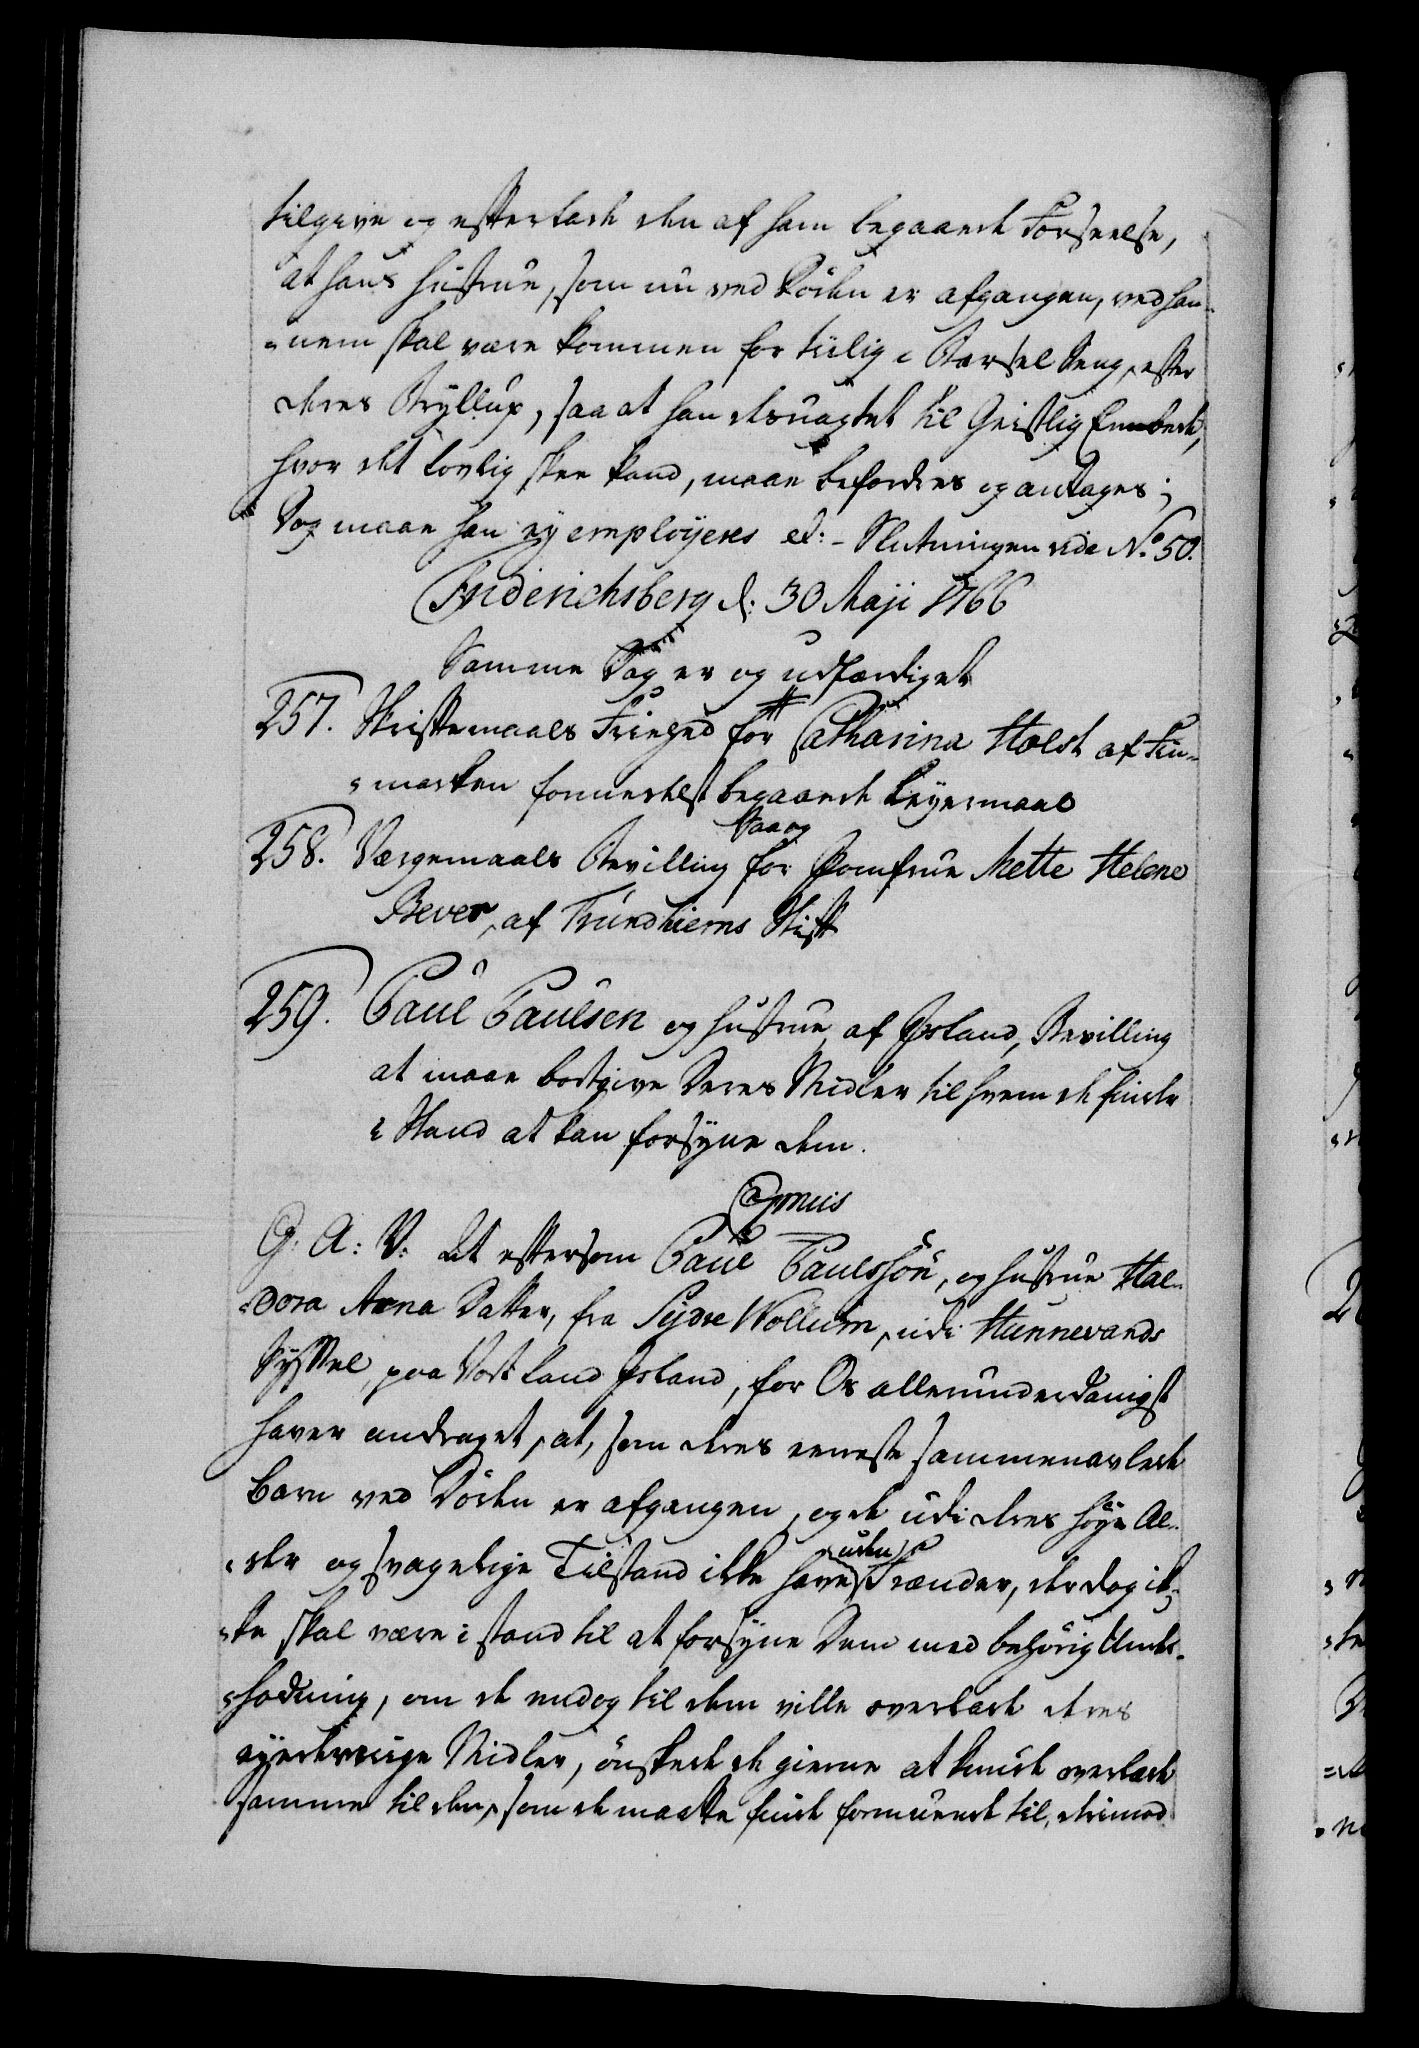 tilgive og efterlade den af ham begaaede Forseelse,
at hans Hustrue, som nu ved Døden er afgangen, ved han-
nem skal være kommen for tiilig i Barsel Seng, efter
deres Bryllup, saa at han desuagtet til Geistlig Embede,
hvor det lovlig skee kand, maae befordres og antages;
Dog maae han ey employeres etc: - Slutningen vide No. 50.
Friderichsberg d: 30 Maji 1766
Samme Dag er og udfærdiget
257. Skriftemaals Friehed for Catharina Holst af Fin-
marken formedelst begaaede Leyermaal
258. Værgemaals Bevilling Saaog for Jomfrue Mette Helene
Bever, af Trundhiems Stift
259. Paul Paulsen og Hustrue, af Island, Bevilling
at maae bortgive Deres Midler til hvem de finde
i Stand at kan forsyne dem.
G. A: V: At eftersom Paul Paulssøn, og Hustrue Hal-
dora Arna Datter, fra Sydre Wollum, udi Hunnevands
Syssel, paa Vort Land Island, for Os allerunderdanigst
haver andraget, at, som deres eeneste sammenavlede
Barn ved Døden er afgangen, og de udi deres høye Al-
der og svagelige Tilstand ikke have uden Frænder, der dog ik-
ke skal være i stand til at forsyne Dem med behørig Under-
holdning, om de endog til dem ville overlade deres
eyendommelige Midler, ønskede de gierne at kunde overlade
samme til den, som de maatte finde formuende til, derimod